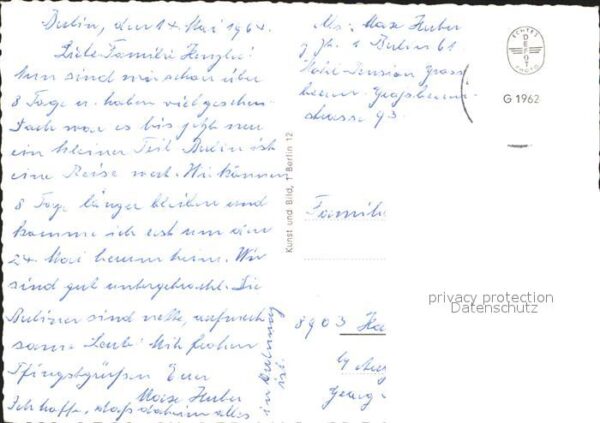 Berlin, den 14. Mai 1964.
Liebe Familie
Nun sind wir schon über
8 Tage u. haben viel gesehen.
Doch war es bis jetzt nur
ein kleiner Teil. Berlin ist
eine Reise wert. Wir können
8 Tage länger bleiben und
komme ich erst um den
24. Mai herum heim. Wir
sind gut untergebracht. Die
Berliner sind nette, aufmerk
same Leute. Mit frohen
Pfingstgrüßen Euer
Max Huber
Ich hoffe, daß daheim alles
in Ordnung
ist.
Kunst und Bild, 1 Berlin 12
Abs: Max Huber
z. Zt. 1 Berlin 61
Hotel-Pension Gross
beeren-Großbeeren-
strasse 93.
ECHTES
DEFOT
PHOTO
G 1962
Famili
8903
Georg
privacy protection
Datenschutz